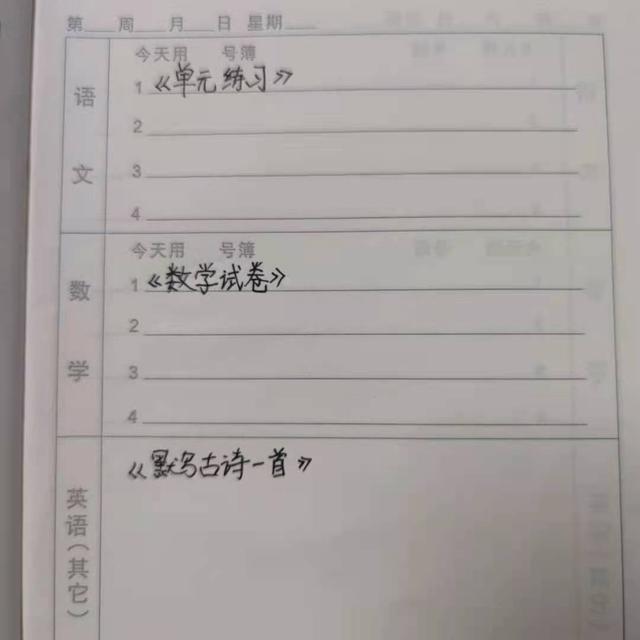 第 周 月 日 星期
今天用 号簿
语文
1 《单元练习》
2
3
4
今天用 号簿
数学
1 《数学试卷》
2
3
4
英语(其它)
《默写古诗一首》